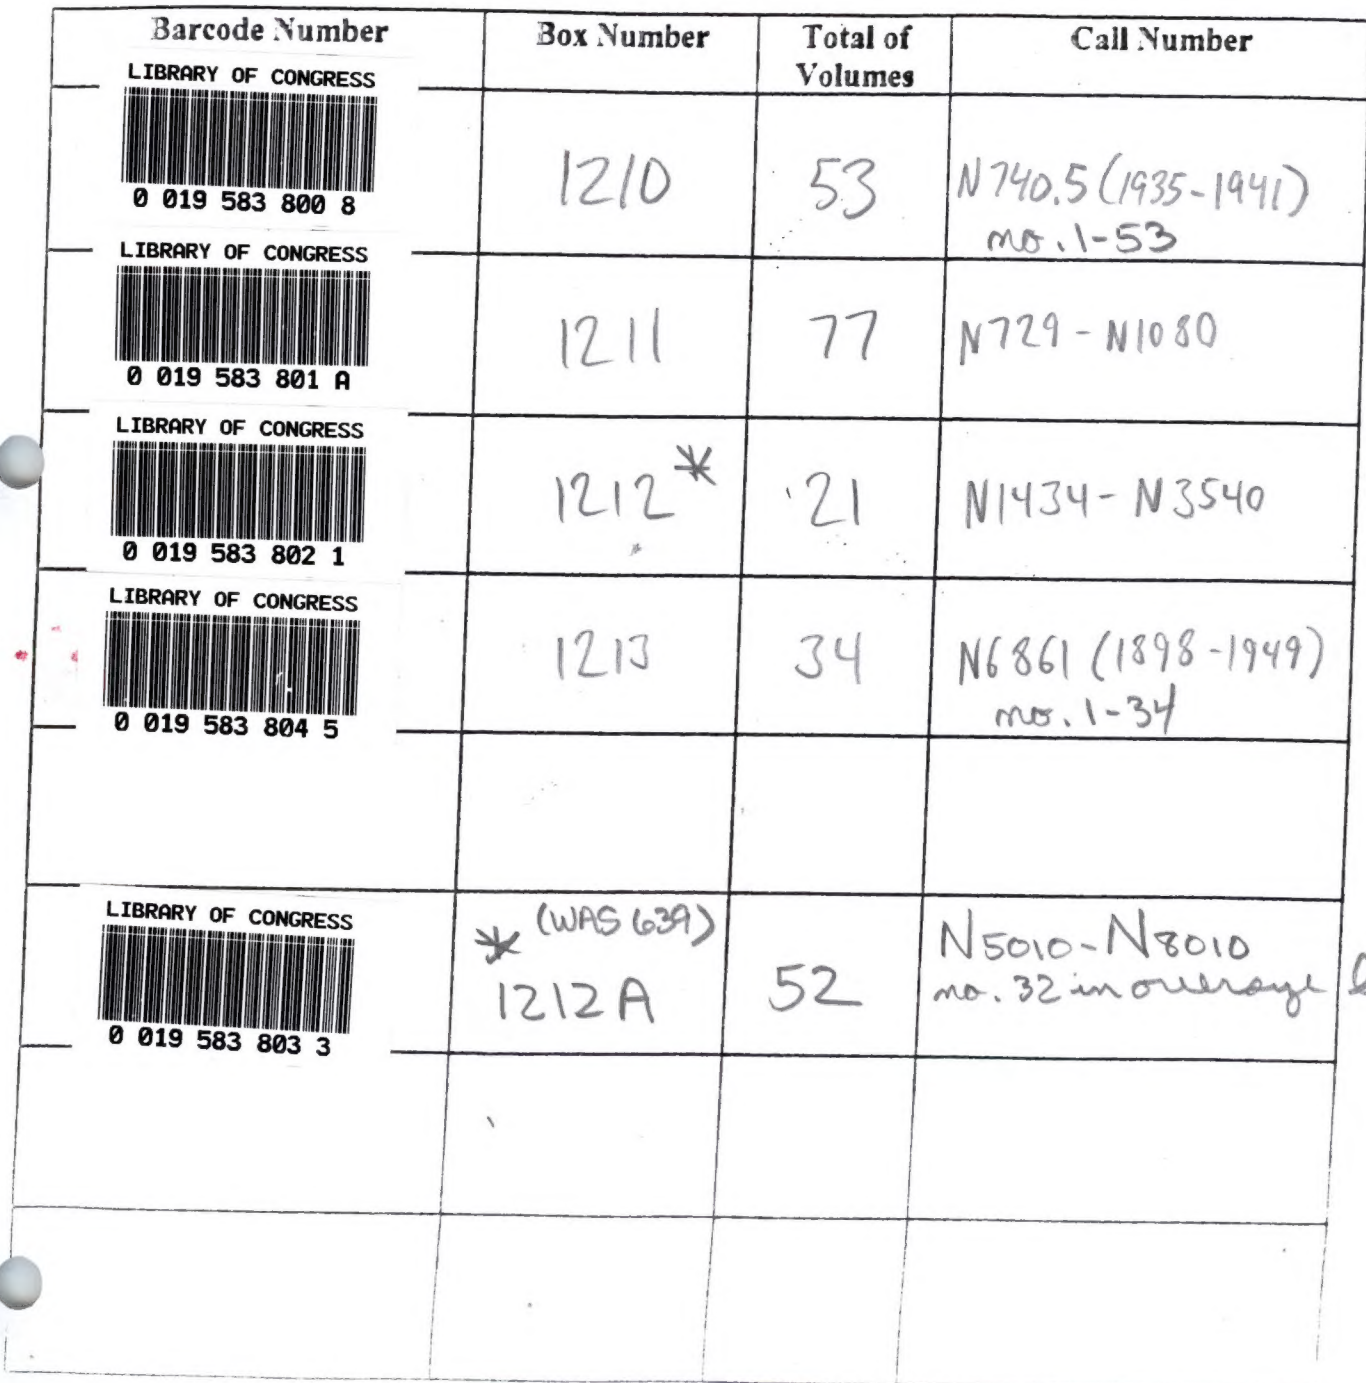 Barcode Number Box Number Total of Volumes Call Number
LIBRARY OF CONGRESS
0 019 583 800 8
1210 53 N740.5 (1935-1941)
no. 1-53
LIBRARY OF CONGRESS
0 019 583 801 A
1211 77 N729 - N1080
LIBRARY OF CONGRESS
0 019 583 802 1
1212* 21 N1434 - N3540
LIBRARY OF CONGRESS
0 019 583 804 5
1213 34 N6861 (1898-1949)
no. 1-34
LIBRARY OF CONGRESS
0 019 583 803 3
* (WAS 639)
1212A 52 N5010-N8010
no. 32 in oversize